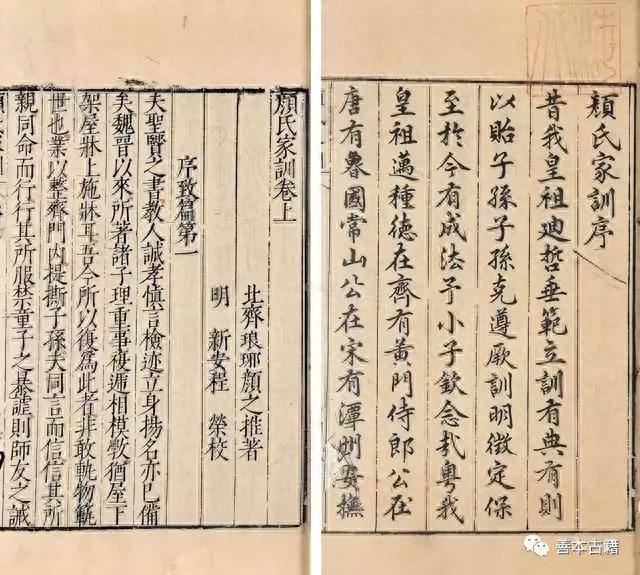 顏氏家訓序
昔我皇祖迪哲垂範立訓有典有則
以貽子孫子孫克遵厥訓明徵定保
至於今有成法予小子欽念哉粵我
皇祖邁種德在齊有黃門侍郎公在
唐有魯國常山公在宋有潭州安撫
顏氏家訓卷上
北齊琅琊顏之推著
明 新安程 榮校
序致篇第一
夫聖賢之書教人誠孝慎言檢迹立身揚名亦已備
矣魏晉以來所著諸子理重事複遞相模斆猶屋下
架屋牀上施牀耳吾今所以復爲此者非敢軌物範
世也業以整齊門內提撕子孫夫同言而信信其所
親同命而行行其所服禁童子之暴謔則師友之誡
善本古籍